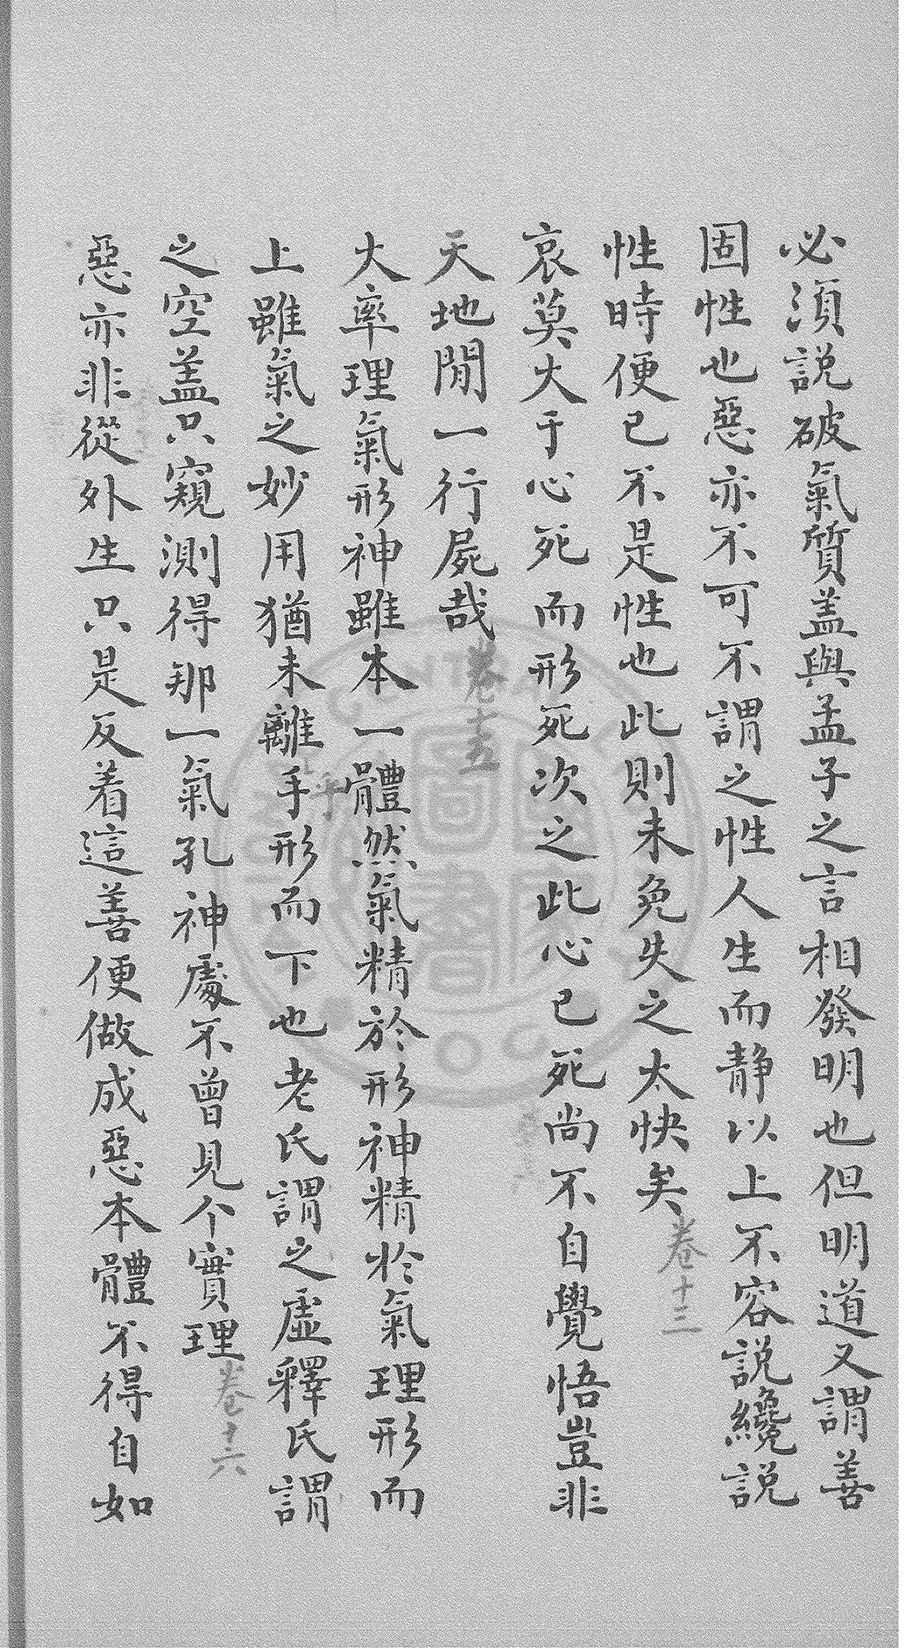 必須説破氣質盖與孟子之言相發明也但明道又謂善
固性也惡亦不可不謂之性人生而静以上不容説纔説
性時便已不是性也此則未免失之太快矣卷十三
哀莫大于心死而形死次之此心已死尚不自覺悟豈非
天地閒一行屍哉卷十五
大率理氣形神雖本一體然氣精於形神精於氣理形而
上雖氣之妙用猶未離乎形而下也老氏謂之虛釋氏謂
之空盖只窺測得那一氣孔神處不曾見个實理卷十六
惡亦非從外生只是反着這善便做成惡本體不得自如